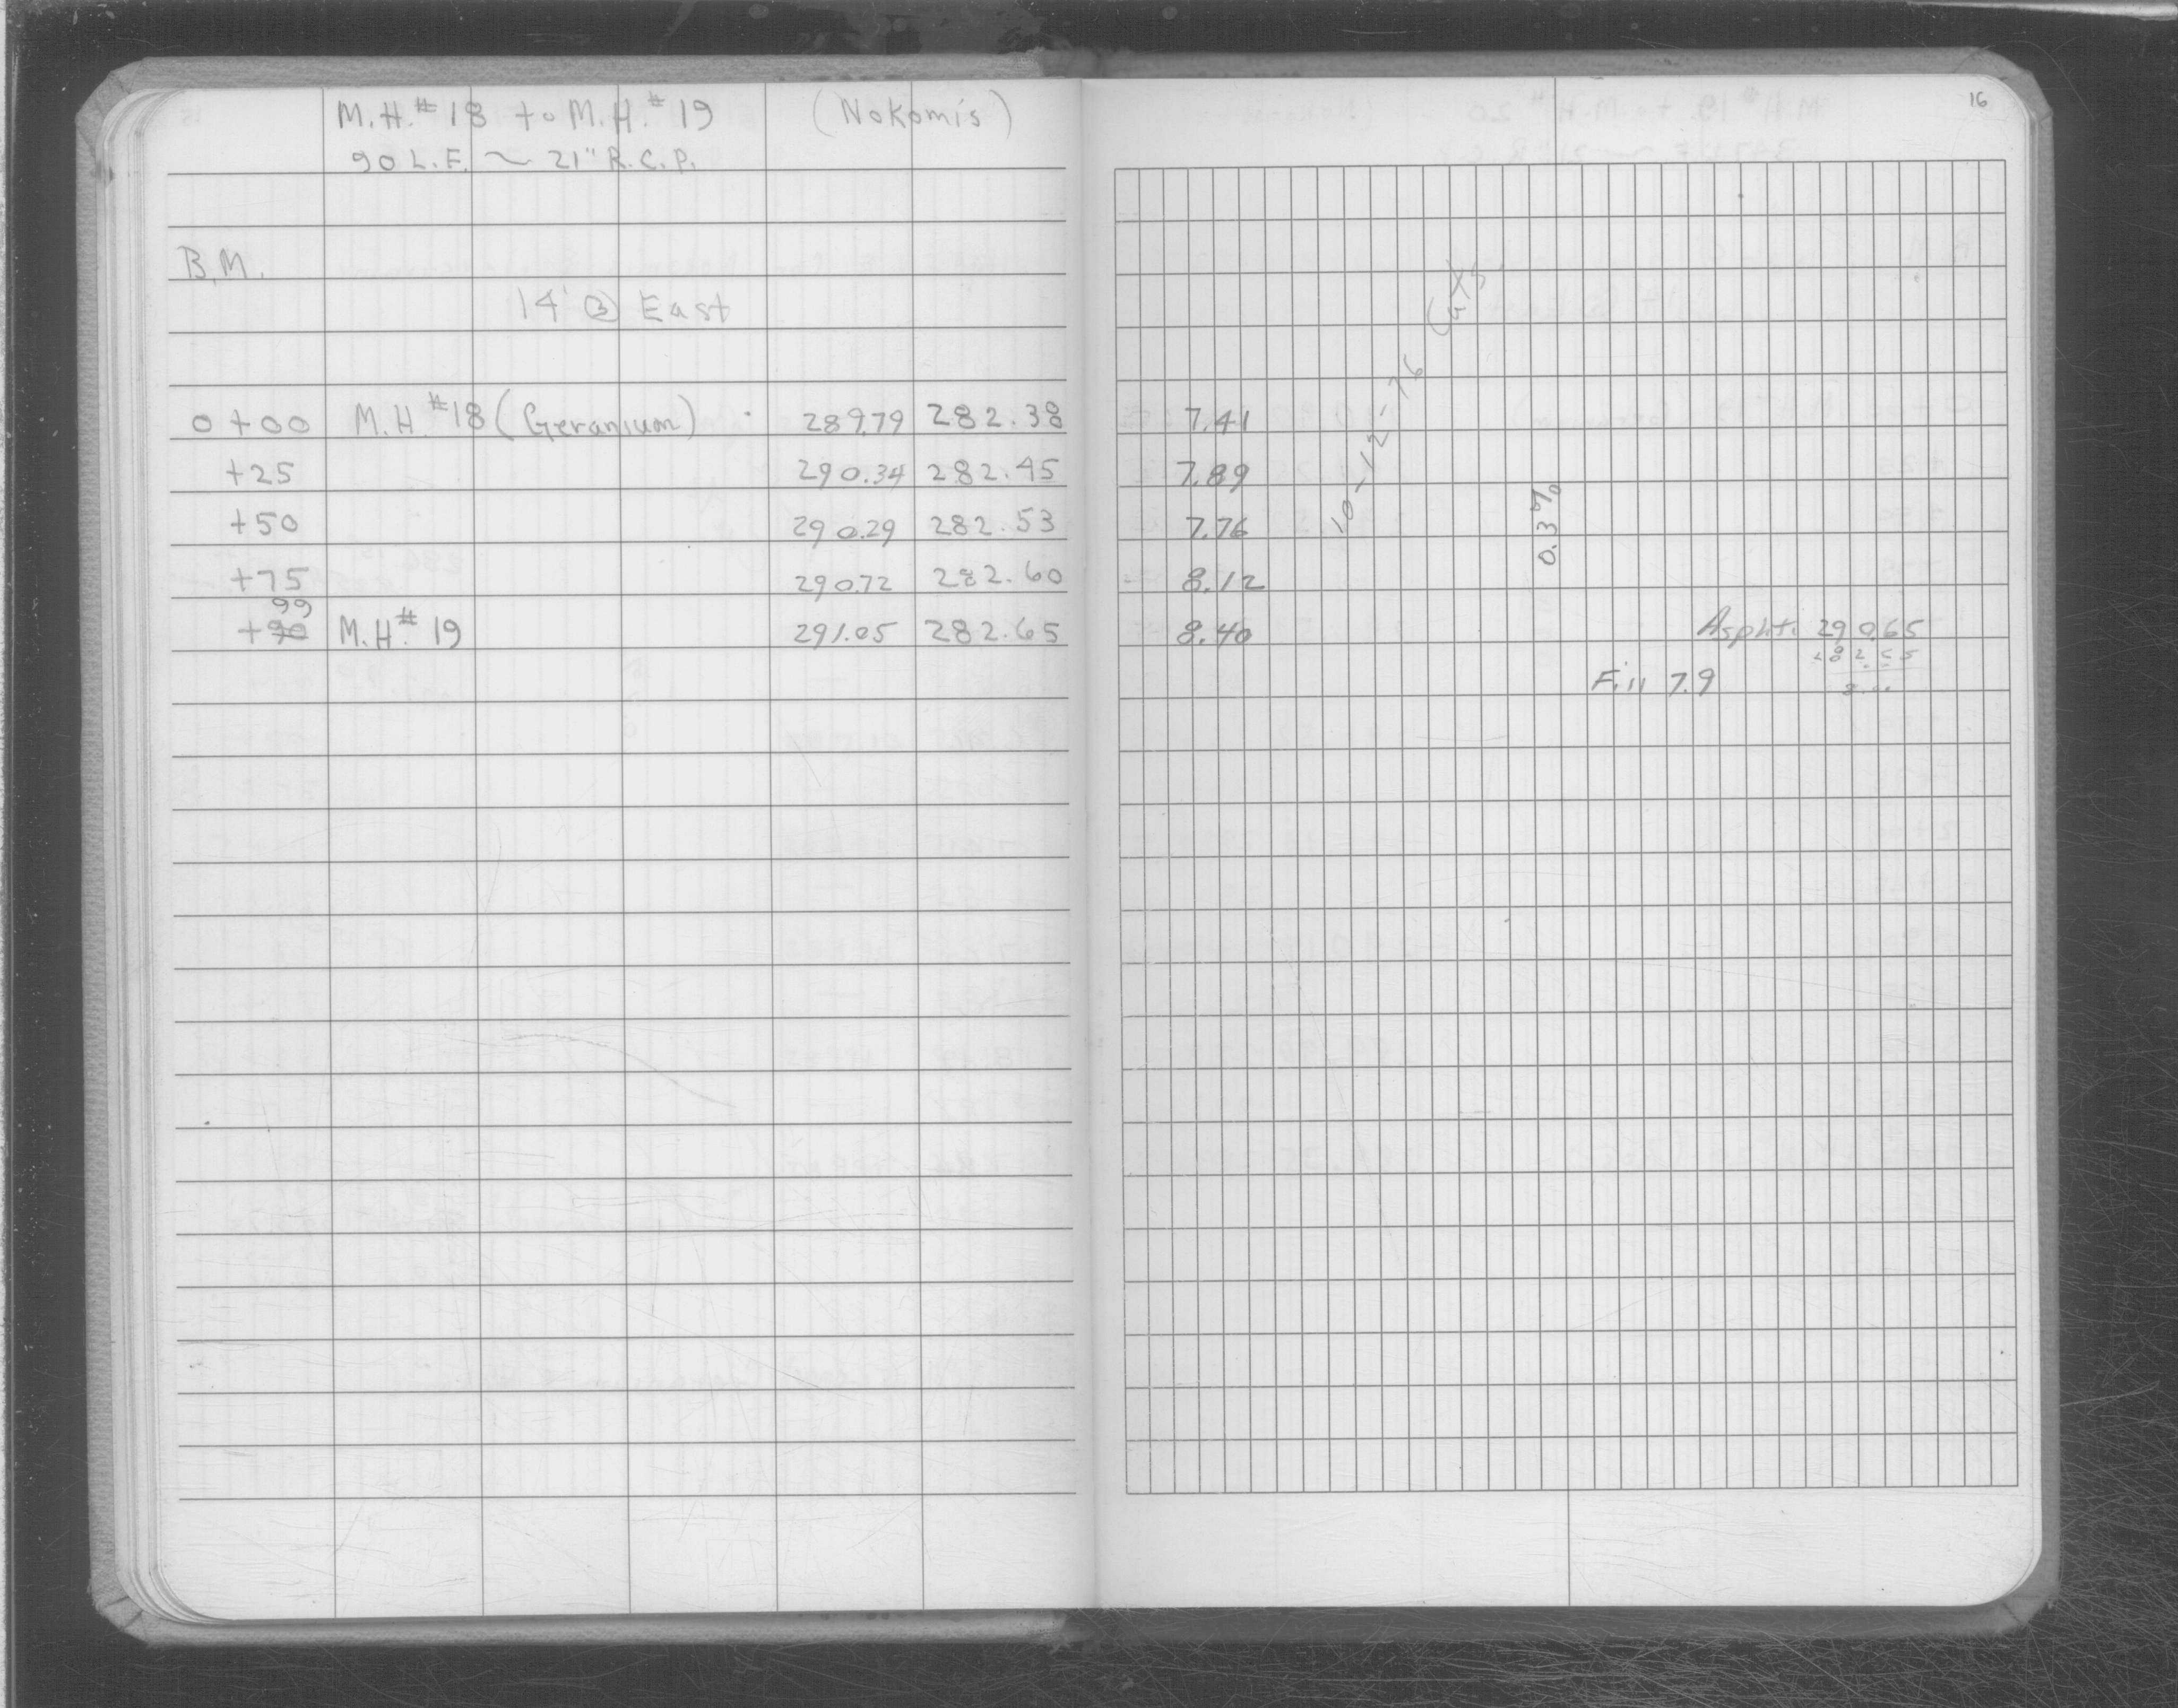 M.H.#18 to M.H.#19 (Nokomis)
90 L.F. ~ 21" R.C.P.
16
B.M.
14' @ East
0+00 M.H.#18 (Geranium) 289.79 282.38 7.41
+25 290.34 282.45 7.89
+50 290.29 282.53 7.76
+75 290.72 282.60 8.12
99
+90 M.H.#19 291.05 282.65 8.40
10-12-76
0.3%
Aspht. 290.65
282.65
Fill 7.9